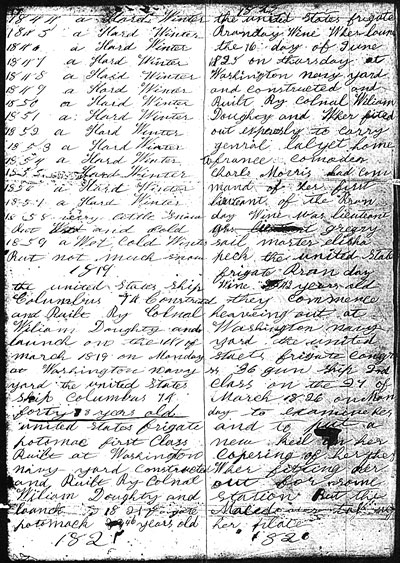 1844 a Hard Winter
1845 a Hard Winter
1846 a Hard Winter
1847 a Hard Winter
1848 a Hard Winter
1849 a Hard Winter
1850 a Hard Winter
1851 a Hard Winter
1852 a Hard Winter
1853 a Hard Winter
1854 a Hard Winter
1855 a Hard Winter
1856 a Hard Winter
1857 a Hard Winter
1858 very little Snow
But and Cold
1859 a Wot Cold Winter
But not much snow
1819
the united States ship
Columbus 74 Constructed
and Built By Colnal
Wiliam Doughty and
launch on the of
march 1819 on Monday
at Washington navy
yard the united States
ship Columbus 74
forty years old
united States frigate
potomac first Class
Built at Washington
navy yard constructed
and Built By Colnal
Wiliam Doughty and
launch 1821 frigate
potomack years old
1821
the united States frigate
Brandy Wine Wher lounch
the 16 day of June
1825 on thursday at
Washington navy yard
and constructed and
Built By Colnal Wiliam
Doughty and Wher fited
out expresly to carry
genral lafyet home
to france comodor
Charls Morris had com
mand of her first
lieutant of the Bran
day Wine was lieutant
gregory
sail master elisha
peck the united States
frigate Bran day
Wine years old
they commence
heaveing out at
Washington navy
yard the united
stats frigate congr
s 36 gun ship 2nd
class on the 27 of
March 1826 on Mon
day to examine her
and to put a
new keel on her
copering of her they
Wher fitting her
out for some
station But the
Maced
her plate
1826